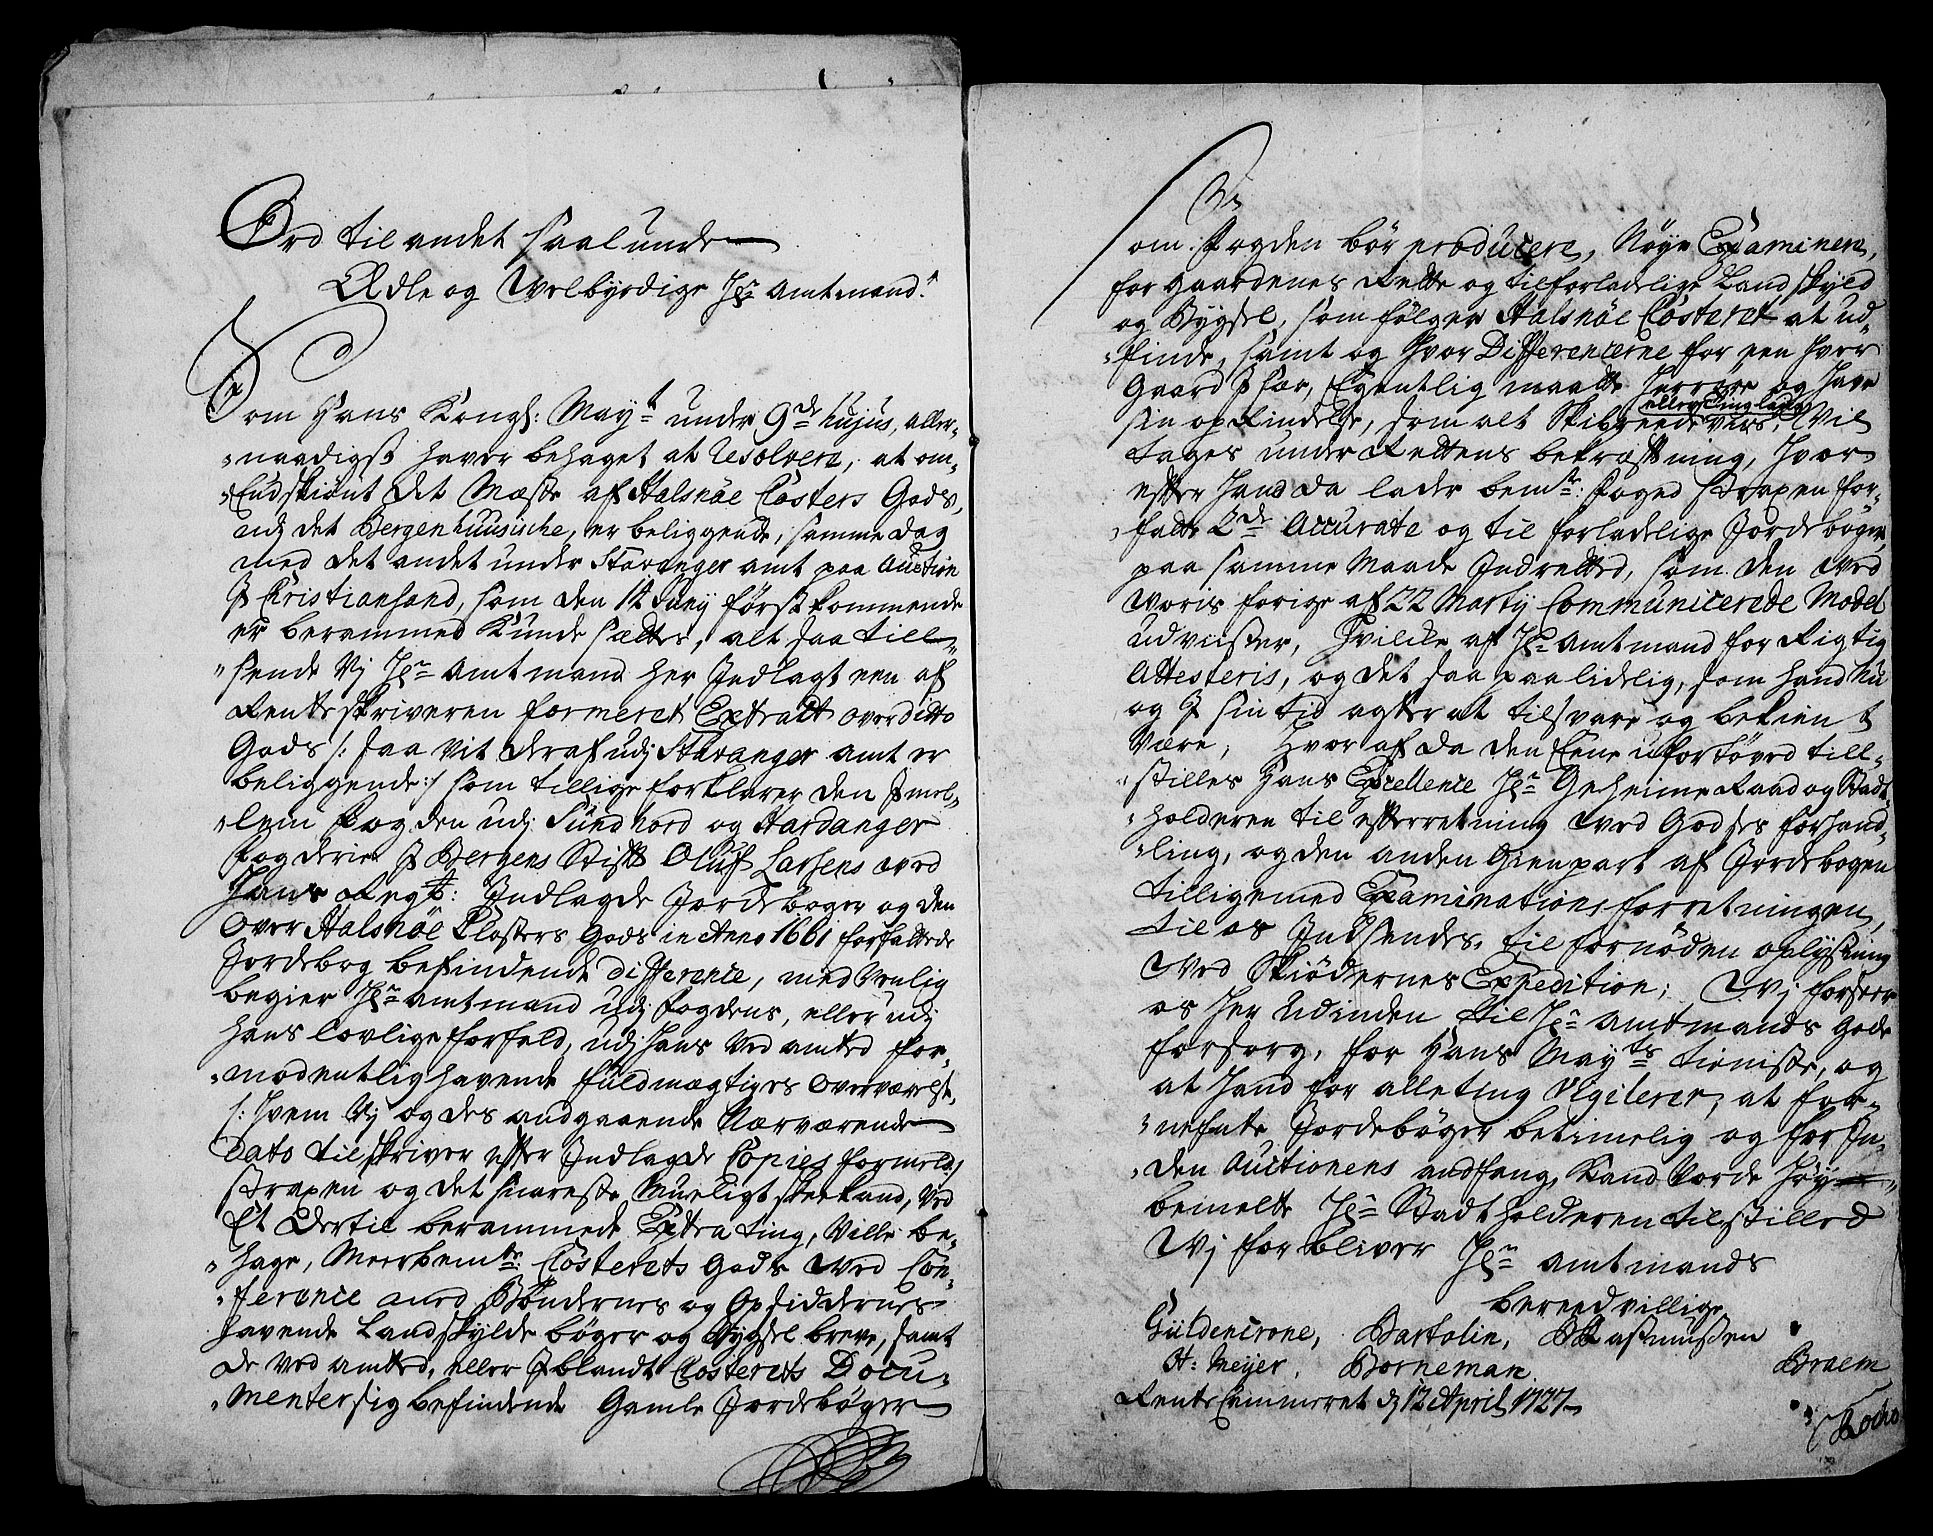 Ord til andet saalunde
Ædle og Welbyrdige Hr Amtmand!
Som Hans Kongl: Mayt under 9de hujus, aller-
naadigst haver behaget at Resolvere, at om-
Endskiönt det Mæste af Halsnöe Closters Gods,
udj det Bergenhuusische, er beliggende, samme dag
med det andet under Stavanger amt paa Auction
J Christiansand, som den 14 Juny förstkommende
er berammed Kunde sættes, alt saa till-
sende Vj Hr Amtmand her Indlagt een af
Renteskriveren formeret Extract over ditto
Gods /: saa vit deraf udj Stavanger amt er
beliggende :/ som tillige forklarer den Jmel-
lem Fogden udj Sundhord og Hardanger
Fogderie J Bergens Stift Oluf Larsens ved
Hans Regt: Indlagde Jordebøger og den
over Halsnöe Closters Gods in Anno 1661 forfattede
Jordebog befindende difference, med Venlig
begier Hr Amtmand udj Fogdens, eller udj
hans lovlige forfald, udj hans ved amted for-
modentlig havende fuldmægtiges Overværelse,
/: hvem Vj og des andgaaende Nærværende
Dato tilskriver efter Indlagde Copies formeld/
strapen og det snareste Mueligt skee kand, ved
Et dertil berammede Extra ting, Ville be-
hage, Meerbemte: Closterets Gods ved Con-
ference med Bøndernes og Opsiddernes
havende Landskylde bøger og Bygsel breve, samt
de ved amted, eller Jblandt Closterets Docu-
menter sig befindende Gamle Jordebøger
som Fogden bör producere, Nøye Examinere,
for Gaardenes Rette og tilforladelige Landskyld
og Bygsel, som følger Halsnöe Closteret at ud-
finde, samt og hvor Differencerne for een hver
Gaard J sær, Egentlig maatte herröre og have
sin oprindelse, som alt Skibreedevüs, eller Tinglaug Vil
tages under Rettens bekræftning, hvor-
efter hand da lader bemte: Foged strapen for-
fatte 2de Accurate og tilforladelige Jordebøger,
paa samme Maade Indretted, som den ved
Voris forige af 22 Marty Communicerede Model
udviister, hvilke af Hr Amtmand for Rigtig
Attesteris, og det saa paalidelig, som hand nu
og J sin tid agter at tilsvare og bekient
Være, hvoraf da den Eene ufortøved till-
stilles Hans Excellence Hr Geheime Raad og Stadt-
holderen til efterretning ved Godses forhand-
ling, og den anden Gienpart af Jordebogen
tilligemed Examinationsforretningen,
til os Indsendes, til fornöden oplysning
ved Skiödernes Expedition; Vj forseer
os her udinden til Hr Amtmands gode
forsorg, for Hans Mayts tieniste, og
at hand for alleting Vigilerer, at for-
nefnte Jordebøger betimelig og for In-
den Auctionens andfang, Kand Vorde høy-
bemelte Hr Stadtholderen tilstilled
Vj forbliver Hr Amtmands
bereedvillige
Güldencrone, Bartolin, Rasmussen
H: Meyer. Borneman. Braem
RenteCammeret d 12 April 1727